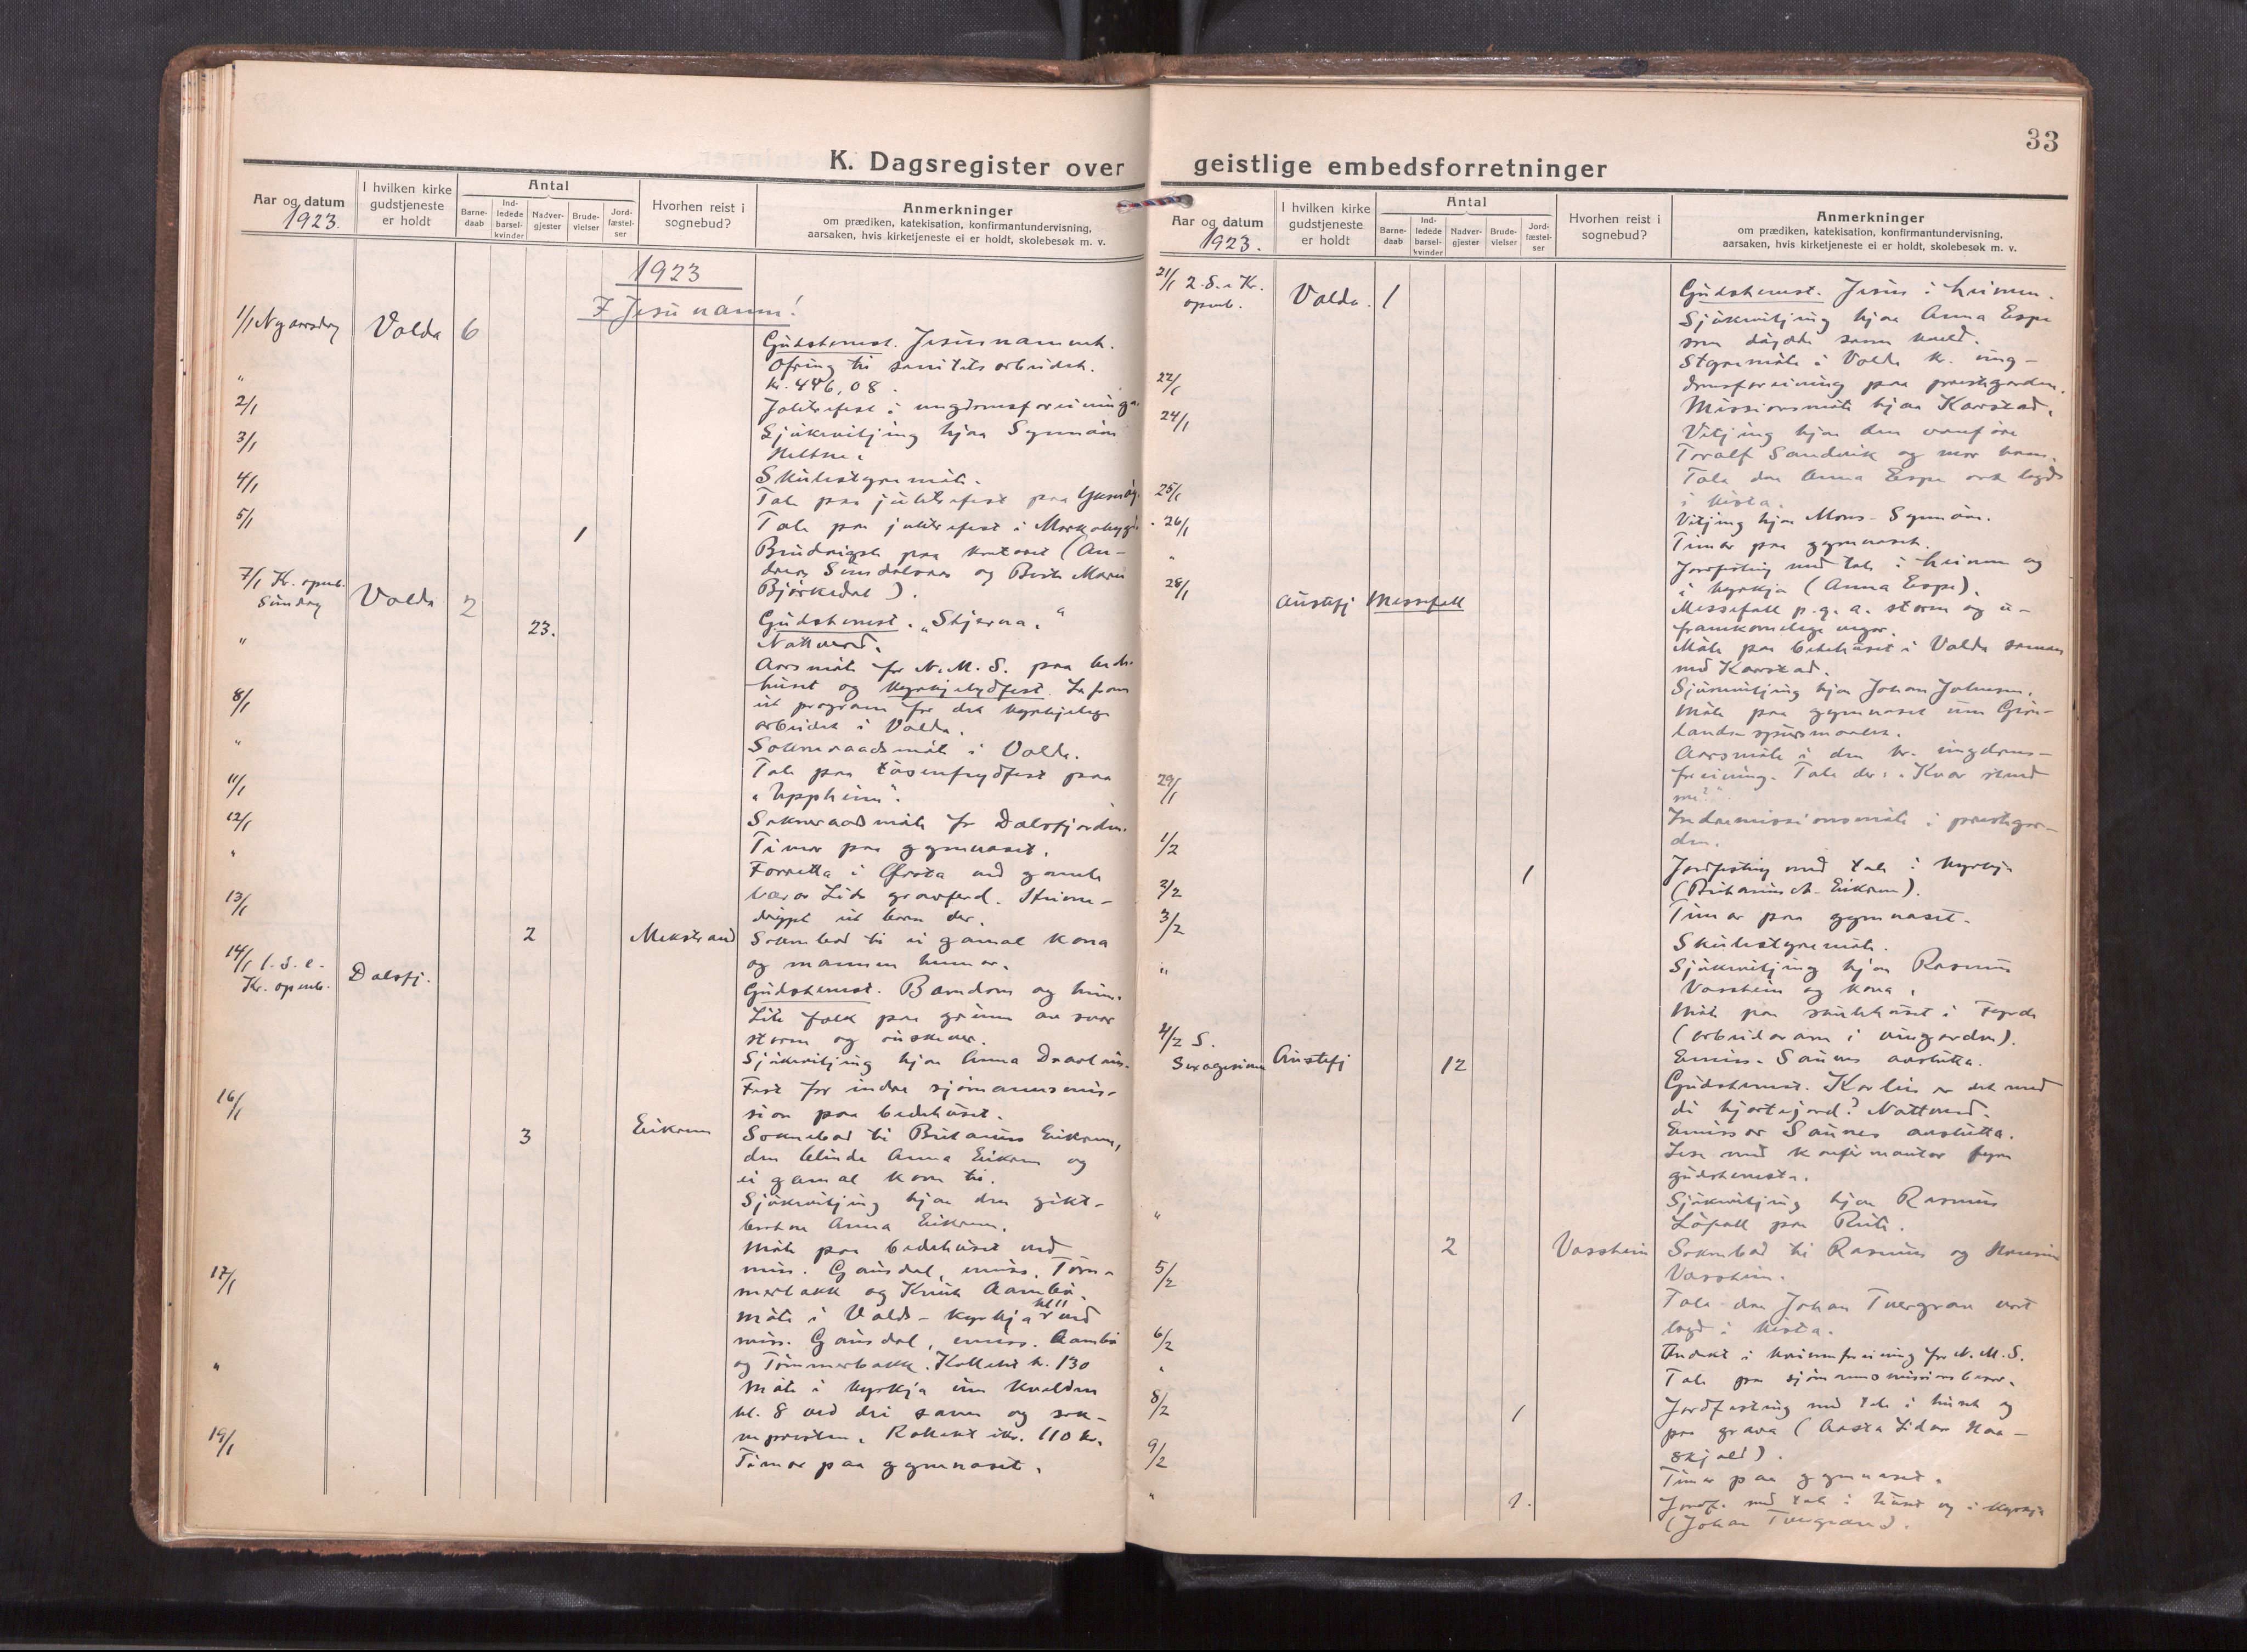 K. Dagsregister over
Aar og datum
1923.
I hvilken kirke
gudstjeneste
er holdt
Antal
Barne-
daab
Ind-
ledede
barsel-
kvinder
Nadver-
gjester
Brude-
vielser
Jord-
fæstel-
ser
Hvorhen reist i
sognebud?
Anmerkninger
om prædiken, katekisation, konfirmantundervisning,
aarsaken, hvis kirketjeneste ei er holdt, skolebesøk m. v.
1923
I Jesu namn!
1/1 Nyaarsdag Volda 6
Gudstenest. Jesusnamnet.
Ofring til sanitetsarbeidet.
" kr. 446,08.
2/1 Joletrefest i ungdomsforeininga.
3/1 Sjukevitjing hjaa Synnøve
Heltne.
4/1 Skulestyremøte.
Tale paa juletrefest paa
5/1 Tale paa juletrefest i Morkabygd.
1 Brudvigsle paa kontoret (An-
dreas Sundalsnes og Berte Marie
Bjørkedal).
7/1 Kr. openb.
Sundag Volda 2
Gudstenest. "Stjerna."
23. Nattverd.
" Aarsmøte for N.M.S. paa bede-
huset og kyrkjelydfest. La fram
8/1 eit program for det kyrkjelege
arbeidet i Volda.
" Sokneraadsmøte i Volda.
Tale paa fest paa
11/1 "Uppheim".
12/1 Sokneraadsmøte for Dalsfjorden.
" Timar paa gymnaset.
Forretta i Ørsta ved gamle
13/1 lærar Lids gravferd. Heime-
døypt eit barn der.
2 Mekstrand Soknebod til ei gamal kona
og mannen hennar.
14/1 1. S. e.
Kr. openb. Dalsfj.
Gudstenest. Barndom og heim.
Lite folk paa grunn av svær
storm og ruskever.
Sjukevitjing hjaa Anna
Fest for indre sjømannsmis-
16/1 sion paa bedehuset.
3 Eikrem Soknebod til Britanus Eikrem,
den blinde Anna Eikrem og
ei gamal kone til.
Sjukevitjing hjaa den gikt-
Anna Eikrem.
Møte paa bedehuset ved
17/1 miss. Gausdal, emiss. Tøm-
merbakk og Knut Aambø.
Møte i Volda-kyrkja kl 11 ved
miss. Gausdal, emiss. Aambø
" og Tømmerbakk. Kollekt kr. 130
Møte i kyrkja um kvelden
kl. 8 ved dei same og sok-
19/1 nepresten. Kollekt 110 kr.
Timar paa gymnaset.
33
geistlige embedsforretninger
Aar og datum
1923.
I hvilken kirke
gudstjeneste
er holdt
Antal
Barne-
daab
Ind-
ledede
barsel-
kvinder
Nadver-
gjester
Brude-
vielser
Jord-
fæstel-
ser
Hvorhen reist i
sognebud?
Anmerkninger
om prædiken, katekisation, konfirmantundervisning,
aarsaken, hvis kirketjeneste ei er holdt, skolebesøk m. v.
21/1 2. S. e Kr.
openb. Volda. 1
Gudstenest. Jesus i heimen.
Sjukevitjing hjaa Anna Espe
som døydde same kveld.
Styremøte i Volda k. ung-
22/1 domsforeining paa prestegarden.
Missionsmøte hjaa Karstad.
24/1 Vitjing hjaa den vanføre
Toralf Sandvik og mor hans.
Tale daa Anna Espe vart lagd
25/1 i kista.
Vitjing hjaa Mons-Synnøve.
26/1 Timar paa gymnaset.
" Jordfesting med tale i heimen og
28/1 i kyrkja (Anna Espe).
Austefj Messefall Messefall p.g.a. storm og u-
framkomelege vegar.
Møte paa bedehuset i Volda saman
med Karstad.
Sjukevitjing hjaa Johan Johnsen.
Møte paa gymnaset um Grøn-
lands-spursmaalet.
Aarsmøte i den kr. ungdoms-
29/1 foreining. Tale der: "Kvar stend
me?"
Indremissionsmøte i prestegar-
1/2 den.
1 Jordfesting med tale i kyrkja
2/2 (Britanus A. Eikrem).
3/2 Timar paa gymnaset.
Skulestyremøte.
" Sjukevitjing hjaa Rasmus
Vassheim og kona.
Møte paa skulehuset i Fyrde
(arbeidarane i vingarden).
4/2 S.
Sexagesima Austefj 12
Emiss. Saunes avslutta.
Gudstenest. Korleis er det med
di hjartejord? Nattverd.
Emissær Saunes avslutta.
Lese med konfirmantar fyre
gudstenesta.
" Sjukevitjing hjaa Rasmus
Løfoll paa Rute.
2 Vassheim Soknebod til Rasmus og
5/2 Vassheim.
Tale daa Johan Tvergrov vart
6/2 lagd i kista.
" Andakt i kvinneforeining for N.M.S.
Tale paa sjømannsmissionsbasar.
8/2 1 Jordfesting med tale i huset og
paa grava (Aasta Lidar Naa-
9/2 skjold).
Timar paa gymnaset.
" 1. Jordf. med tale i huset og i kyrkja
(Johan Tvergrov).